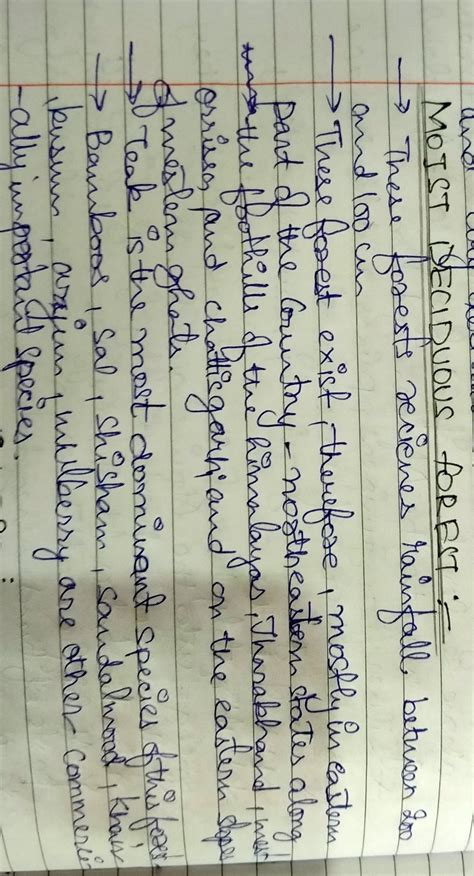 MOIST DECIDUOUS FOREST :-
→ These forests recieves rainfall between 200
and 100 cm
→ These forest exist, therefore, mostly in eastern
part of the country - northeastern states along
the foothills of the himalayas, Jharkhand, west
orrisa, and chattisgarh, and on the eastern slopes
of western ghats.
→ Teak is the most dominent species of this forest.
→ Bamboos, sal, shisham, sandalwood, khair
, kusum, arjun, mulberry are other commerci
-ally important species.